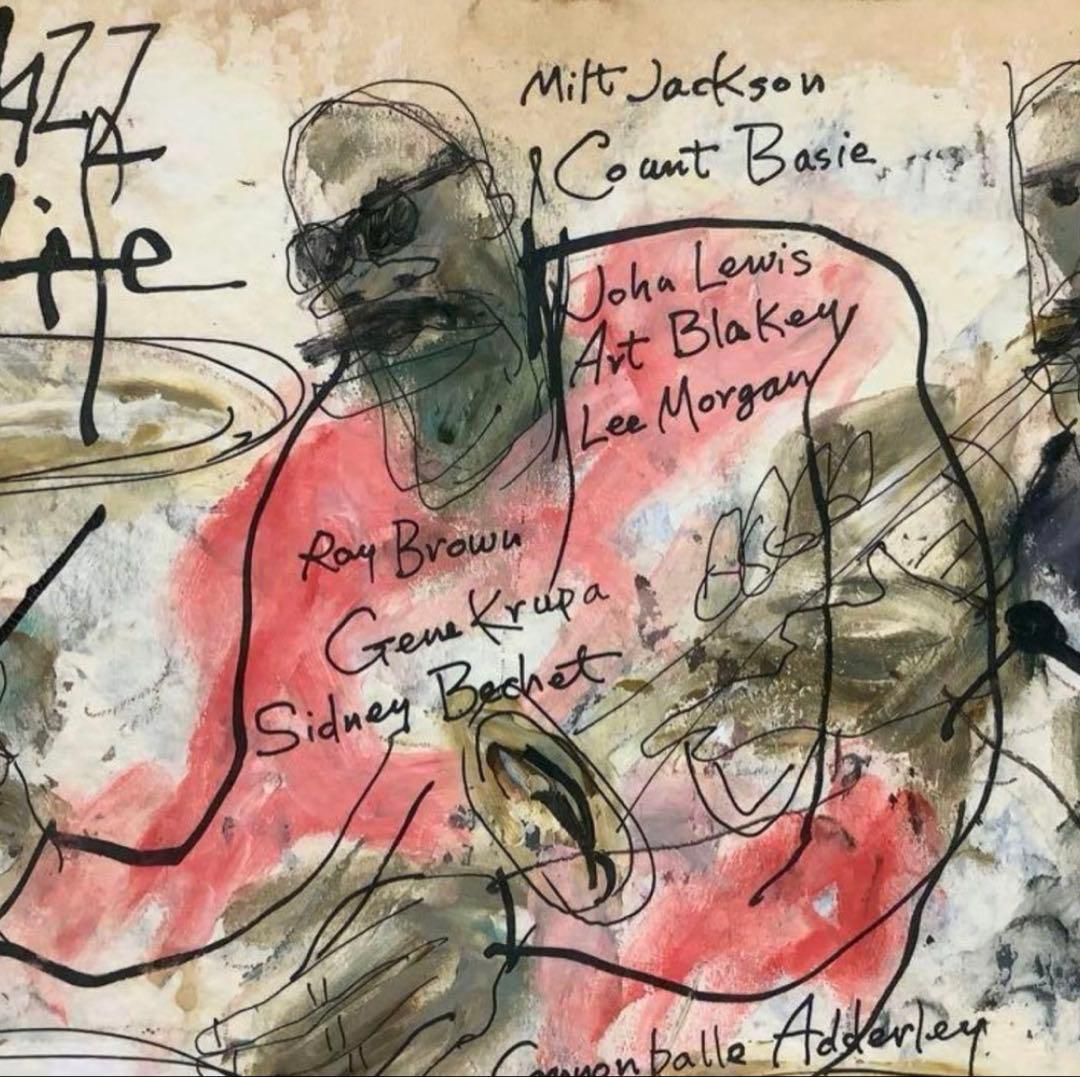 Jazz
life
Milt Jackson
Count Basie
John Lewis
Art Blakey
Lee Morgan
Ray Brown
Gene Krupa
Sidney Bechet
Cannonballe Adderley